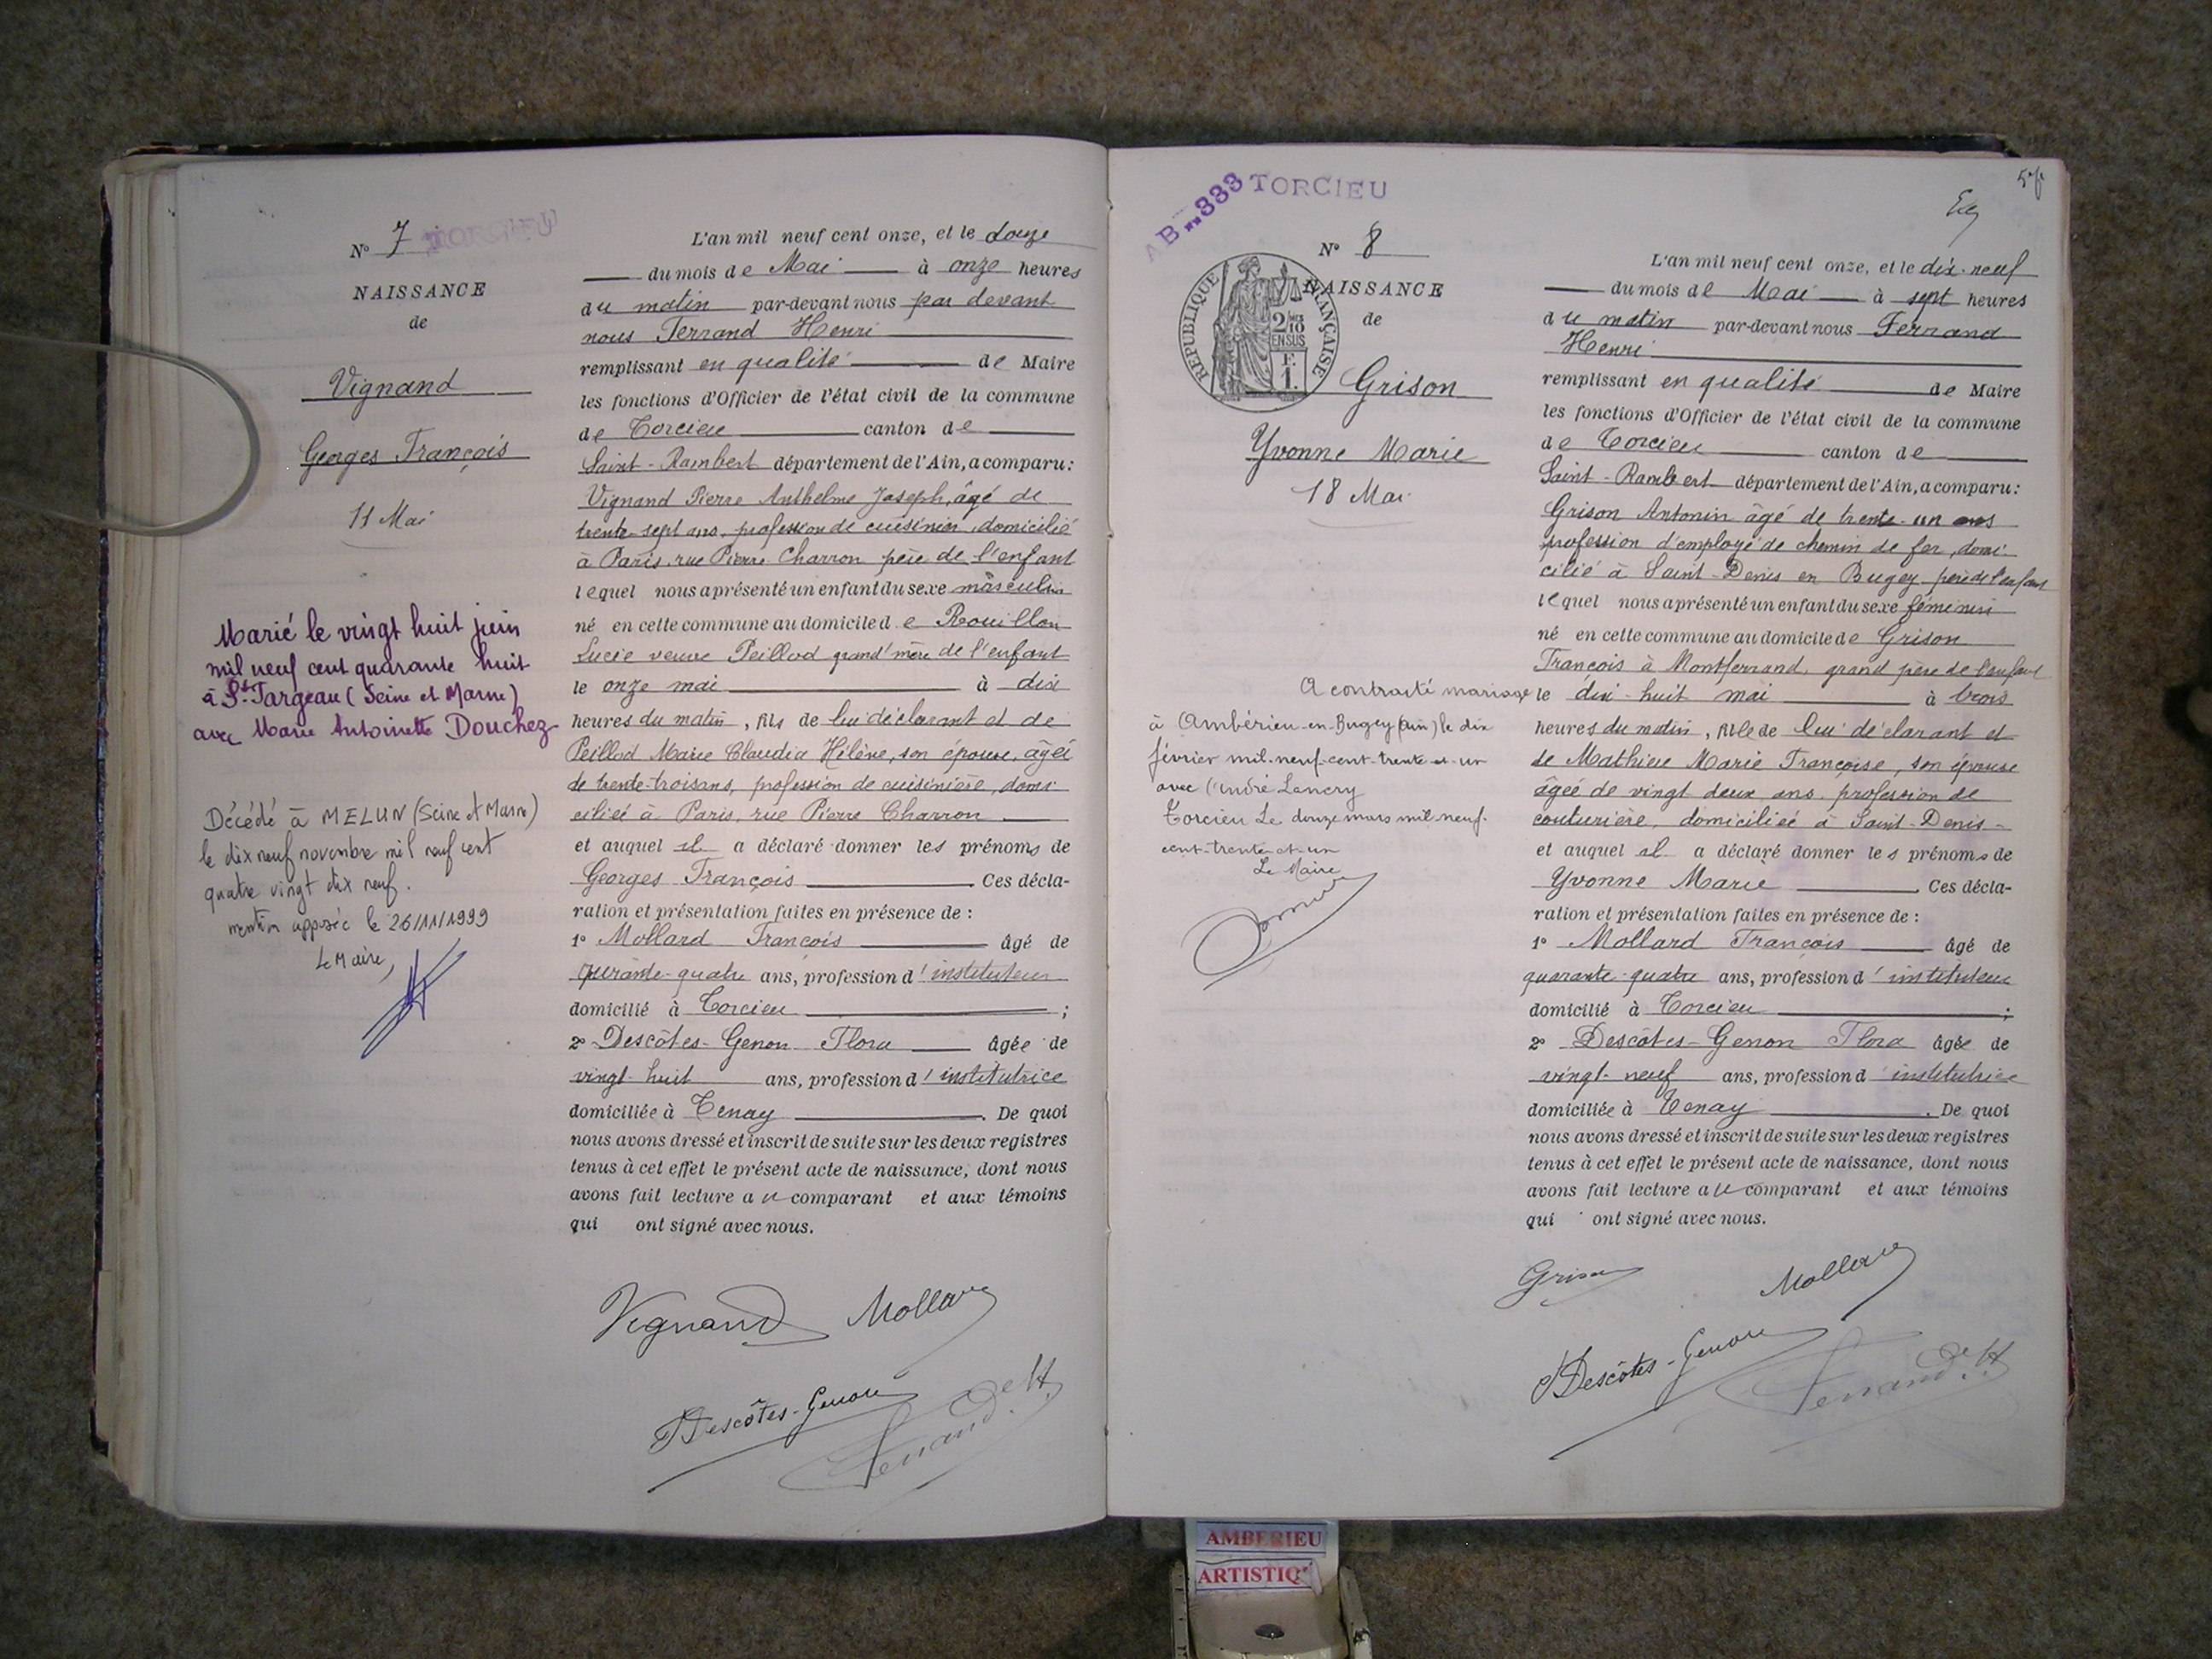 N° 7 TORCIEU
NAISSANCE
de
Vignand
Georges François
11 Mai
Marié le vingt huit juin
mil neuf cent quarante huit
à St. Fargeau (Seine et Marne)
avec Marie Antoinette Douchez
Décédé à MELUN (Seine et Marne)
le dix neuf novembre mil neuf cent
quatre vingt dix neuf.
mention apposée le 26/11/1999
Le Maire,
L'an mil neuf cent onze, et le douze
du mois de Mai à onze heures
du matin par-devant nous par devant
nous Ferrand Henri
remplissant en qualité de Maire
les fonctions d'Officier de l'état civil de la commune
de Torcieu canton de
Saint-Rambert département de l'Ain, a comparu:
Vignand Pierre Anthelme Joseph, âgé de
trente-sept ans, profession de cuisinier, domicilié
à Paris, rue Pierre Charron père de l'enfant
lequel nous a présenté un enfant du sexe masculin
né en cette commune au domicile de Rouillon
Lucie veuve Peillod grand'mère de l'enfant
le onze mai à dix
heures du matin, fils de lui déclarant et de
Peillod Marie Claudia Hélène, son épouse, âgée
de trente-trois ans, profession de cuisinière, domi-
ciliée à Paris, rue Pierre Charron
et auquel il a déclaré donner les prénoms de
Georges François . Ces décla-
ration et présentation faites en présence de :
1° Mollard François âgé de
quarante-quatre ans, profession d'instituteur
domicilié à Torcieu ;
2° Descôtes-Genon Flora âgée de
vingt-huit ans, profession d'institutrice
domiciliée à Tenay . De quoi
nous avons dressé et inscrit de suite sur les deux registres
tenus à cet effet le présent acte de naissance, dont nous
avons fait lecture au comparant et aux témoins
qui ont signé avec nous.
Vignand Mollard
Descôtes-Genon
Ferrand H.
AB 333 TORCIEU
N° 8
NAISSANCE
de
RÉPUBLIQUE FRANÇAISE
2/10
EN SUS
F.
1.
Grison
Yvonne Marie
18 Mai
A contracté mariage
à Ambérieu-en-Bugey (Ain) le dix
février mil-neuf-cent-trente-et-un
avec André Lancry
Torcieu Le douze mars mil neuf-
cent-trente-et-un
Le Maire
L'an mil neuf cent onze, et le dix-neuf
du mois de Mai à sept heures
du matin par-devant nous Ferrand
Henri
remplissant en qualité de Maire
les fonctions d'Officier de l'état civil de la commune
de Torcieu canton de
Saint-Rambert département de l'Ain, a comparu:
Grison Antonin âgé de trente-un ans
profession d'employé de chemin de fer, domi-
cilié à Saint-Denis en Bugey père de l'enfant
lequel nous a présenté un enfant du sexe féminin
né en cette commune au domicile de Grison
François à Montferrand, grand père de l'enfant
le dix-huit mai à trois
heures du matin, fille de lui déclarant et
de Mathieu Marie Françoise, son épouse
âgée de vingt deux ans, profession de
couturière, domiciliée à Saint-Denis-
et auquel il a déclaré donner les prénoms de
Yvonne Marie . Ces décla-
ration et présentation faites en présence de :
1° Mollard François âgé de
quarante-quatre ans, profession d'instituteur
domicilié à Torcieu ;
2° Descôtes-Genon Flora âgée de
vingt-neuf ans, profession d institutrice
domiciliée à Tenay . De quoi
nous avons dressé et inscrit de suite sur les deux registres
tenus à cet effet le présent acte de naissance, dont nous
avons fait lecture au comparant et aux témoins
qui ont signé avec nous.
Grison Mollard
Descôtes-Genon
Ferrand H.
AMBERIEU
ARTISTIQ